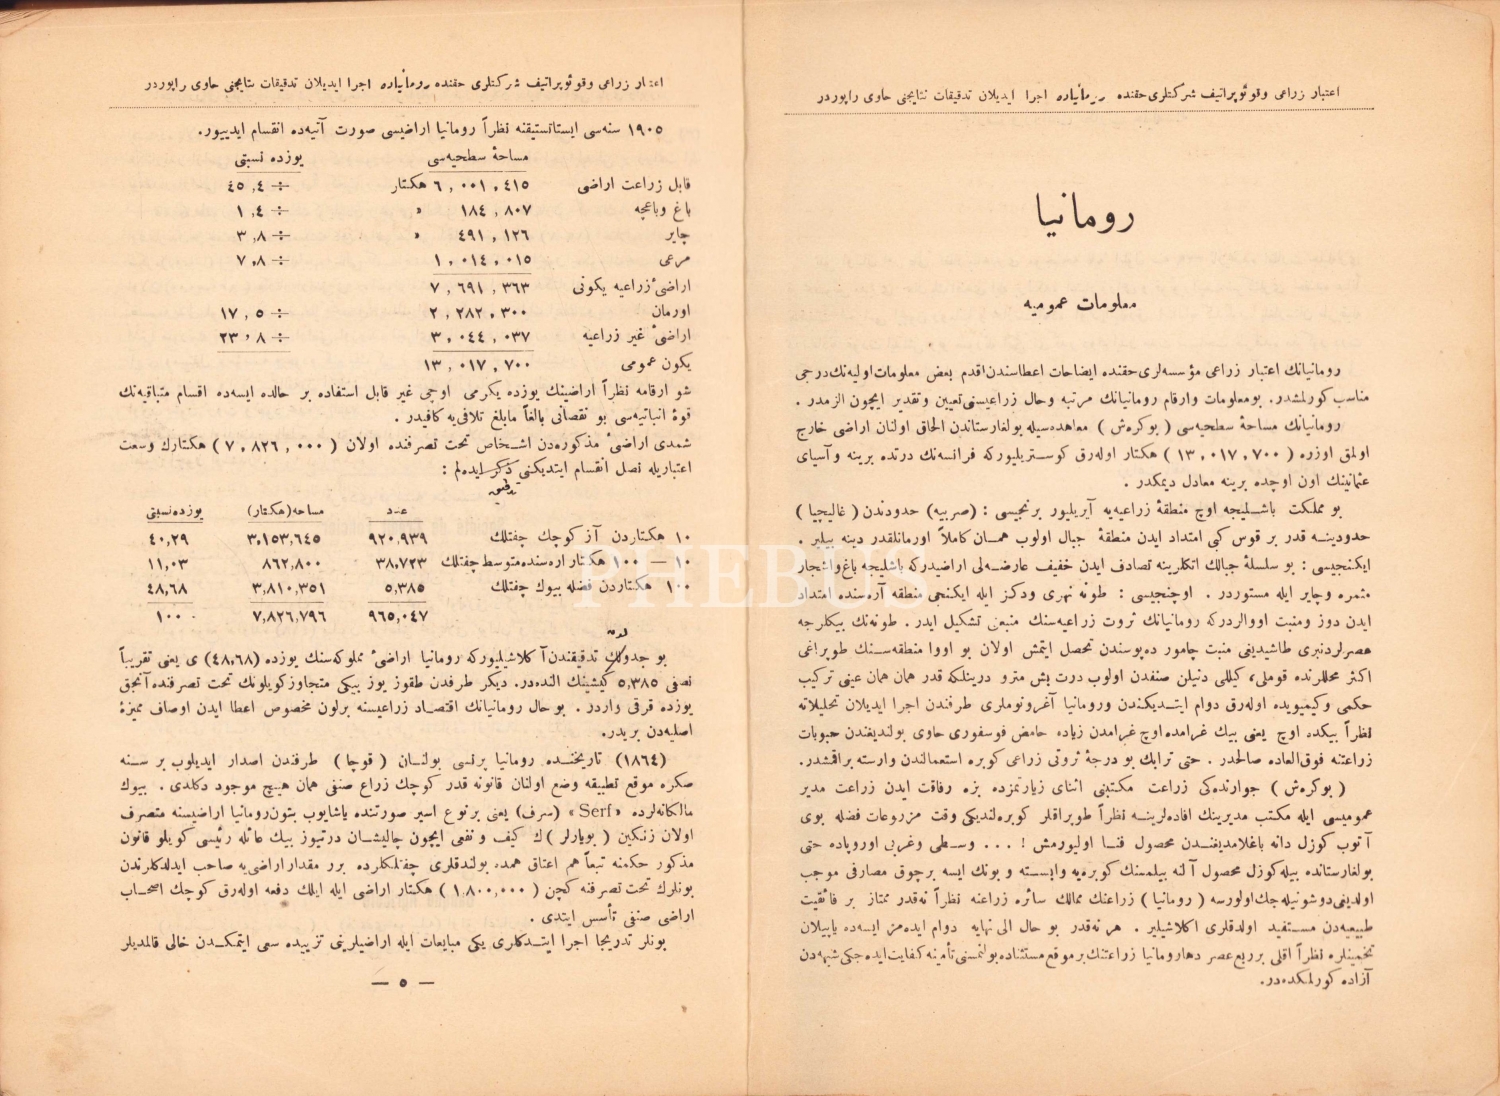 اعتبار زراعی وقوئوپراتیف شرکتلری حقنده رومانیاده اجرا ایدیلان تدقیقات نتایجنی حاوی راپوردر
رومانیا
معلومات عمومیه
رومانیانك اعتبار زراعی مؤسسه‌لری حقنده ایضاحات اعطاسندن اقدم بعض معلومات اولیه‌نك درجی
مناسب كورلمشدر. بو معلومات وارقام رومانیانك مرتبه وحال زراعیسنی تعیین وتقدیر ایچون الزمدر .
رومانیانك مساحهٔ سطحیه‌سی ( بوكرش ) معاهده‌سیله بولغارستاندن الحاق اولنان اراضی خارج
اولمق اوزره ( ١٣,٠١٧,٧٠٠ ) هكتار اوله‌رق كوستریلیوركه فرانسه‌نك درتده برینه وآسیای
عثمانینك اون اوچده برینه معادل دیمكدر .
بو مملكت باشلیجه اوچ منطقهٔ زراعیه‌یه آیریلیور برنجیسی : (صربیه) حدودندن ( غالیچیا )
حدودینه قدر بر قوس كبی امتداد ایدن منطقهٔ جبال اولوب همان كاملاً اورمانلقدر دینه بیلیر .
ایكنجیسی : بو سلسلهٔ جبالك اتكلرینه تصادف ایدن خفیف عارضه‌لی اراضیدركه باشلیجه باغ واشجار
مثمره وچایر ایله مستوردر . اوچنجیسی : طونه نهری ودكز ایله ایكنجی منطقه آره‌سنده امتداد
ایدن دوز ومنبت اووالردركه رومانیانك ثروت زراعیه‌سنك منبعنی تشكیل ایدر . طونه‌نك بیكلرجه
عصرلردنبری طاشیدیغی منبت چامور ده‌پوسندن تحصل ایتمش اولان بو اووا منطقه‌سنك طوپراغی
اكثر محللرنده قوملی، كیللی دنیلن صنفدن اولوب درت بش مترو درینلكه قدر همان همان عینی تركیب
حكمی وكیمیویده اوله‌رق دوام ایتدیكندن ورومانیا آغرونوملری طرفندن اجرا ایدیلان تحلیلاته
نظراً بیكده اوچ یعنی بیك غرامده اوچ غرامدن زیاده حامض فوسفوری حاوی بولندیغندن حبوبات
زراعتنه فوق‌العاده صالحدر . حتی ترابك بو درجهٔ ثروتی زراعی كوبره استعمالندن وارسته براقمشدر.
( بوكرش ) جوارنده‌كی زراعت مكتبنی اثنای زیارتمزده بزه رفاقت ایدن زراعت مدیر
عمومیسی ایله مكتب مدیرینك افاده‌لرینه نظراً طوپراقلر كوبره‌لندیكی وقت مزروعات فضله بوی
آتوب كوزل دانه باغلامدیغندن محصول فنا اولیورمش ! ... وسطی وغربی اوروپاده حتی
بولغارستانده بیله كوزل محصول آلنه بیلمسنك كوبره‌یه وابسته و بونك ایسه برچوق مصارفی موجب
اولدیغی دوشونیله‌جك اولورسه ( رومانیا ) زراعنك ممالك سائره زراعنه نظراً نه‌قدر ممتاز بر فائقیت
طبیعیه‌دن مستفید اولدقلری اكلاشیلیر . هر نه‌قدر بو حال الی نهایه دوام ایده‌مز ایسه‌ده یاپیلان
تخمینلره نظراً اقلی برربع عصر دها رومانیا زراعتنك بر موقع مستثناده بولنمسنی تأمینه كفایت ایده‌جكی شبهه‌دن
آزاده كورلمكده‌در.
اعتبار زراعی وقوئوپراتیف شركتلری حقنده رومانیاده اجرا ایدیلان تدقیقات نتایجنی حاوی راپوردر
١٩٠٥ سنه‌سی ایستاتستیقنه نظراً رومانیا اراضیسی صورت آتیه‌ده انقسام ایدییور.
مساحهٔ سطحیه‌سی یوزده نسبتی
قابل زراعت اراضی ٦,٠٠١,٤١٥ هكتار ٤٥,٤ ÷
باغ وباغچه ١٨٤,٨٠٧ » ١,٤ ÷
چایر ٤٩١,١٢٦ » ٣,٨ ÷
مرعی ١,٠١٤,٠١٥ ٧,٨ ÷
اراضیٔ زراعیه یكونی ٧,٦٩١,٣٦٣
اورمان ٢,٢٨٢,٣٠٠ ١٧,٥ ÷
اراضیٔ غیر زراعیه ٣,٠٤٤,٠٣٧ ٢٣,٨ ÷
یكون عمومی ١٣,٠١٧,٧٠٠
شو ارقامه نظراً اراضینك یوزده یكرمی اوچی غیر قابل استفاده بر حالده ایسه‌ده اقسام متباقیه‌نك
قوهٔ انباتیه‌سی بو نقصانی بالغاً مابلغ تلافی‌یه كافیدر .
شمدی اراضیٔ مذكوره‌دن اشخاص تحت تصرفنده اولان ( ٧,٨٢٦,٠٠٠ ) هكتارك وسعت
اعتباریله نصل انقسام ایتدیكنی ذكر ایده‌لم :
تدقیق
عدد مساحه(هكتار) یوزده‌نسبتی
١٠ هكتاردن آز كوچك چفتلك ٩٢٠,٩٣٩ ٣,١٥٣,٦٤٥ ٤٠,٢٩
١٠ — ١٠٠ هكتار اره‌سنده متوسط چفتلك ٣٨,٧٢٣ ٨٦٢,٨٠٠ ١١,٠٣
١٠٠ هكتاردن فضله بیوك چفتلك ٥,٣٨٥ ٣,٨١٠,٣٥١ ٤٨,٦٨
٩٦٥,٠٤٧ ٧,٨٢٦,٧٩٦ ١٠٠
بو جدولك تدقیقندن آكلاشیلیوركه رومانیا اراضیٔ مملوكه‌سنك یوزده (٤٨,٦٨) ی یعنی تقریباً
نصفی ٥,٣٨٥ كیشینك النده‌در. دیكر طرفدن طقوز یوز بیكی متجاوز كویلونك تحت تصرفنده آنجق
یوزده قرقی واردر . بو حال رومانیانك اقتصاد زراعیسنه برلون مخصوص اعطا ایدن اوصاف ممیزهٔ
اصلیه‌دن بریدر.
(١٨٦٤) تاریخنده رومانیا پرنسی بولنان ( قوچا ) طرفندن اصدار ایدیلوب بر سنه
صكره موقع تطبیقه وضع اولنان قانونه قدر كوچك زراع صنفی همان هیچ موجود دكلدی . بیوك
مالكانه‌لرده «Serf» (سرف) یعنی برنوع اسیر صورتنده یاشایوب بتون رومانیا اراضیسنه متصرف
اولان زنكین ( بویارلر ) ك كیف و نفعی ایچون چالیشان درتیوز بیك عائله رئیسی كویلو قانون
مذكور حكمنه تبعاً هم اعتاق همده بولندقلری چفتلكلرده برر مقدار اراضی‌یه صاحب ایدلدكلرندن
بونلرك تحت تصرفنه كچن ( ١,٨٠٠,٠٠٠ ) هكتار اراضی ایله ایلك دفعه اوله‌رق كوچك اصحاب
اراضی صنفی تأسس ایتدی .
بونلر تدریجاً اجرا ایتدكلری یكی مبایعات ایله اراضیلرینی تزییده سعی ایتمكدن خالی قالمدیلر
— ٥ —
PHEBUS